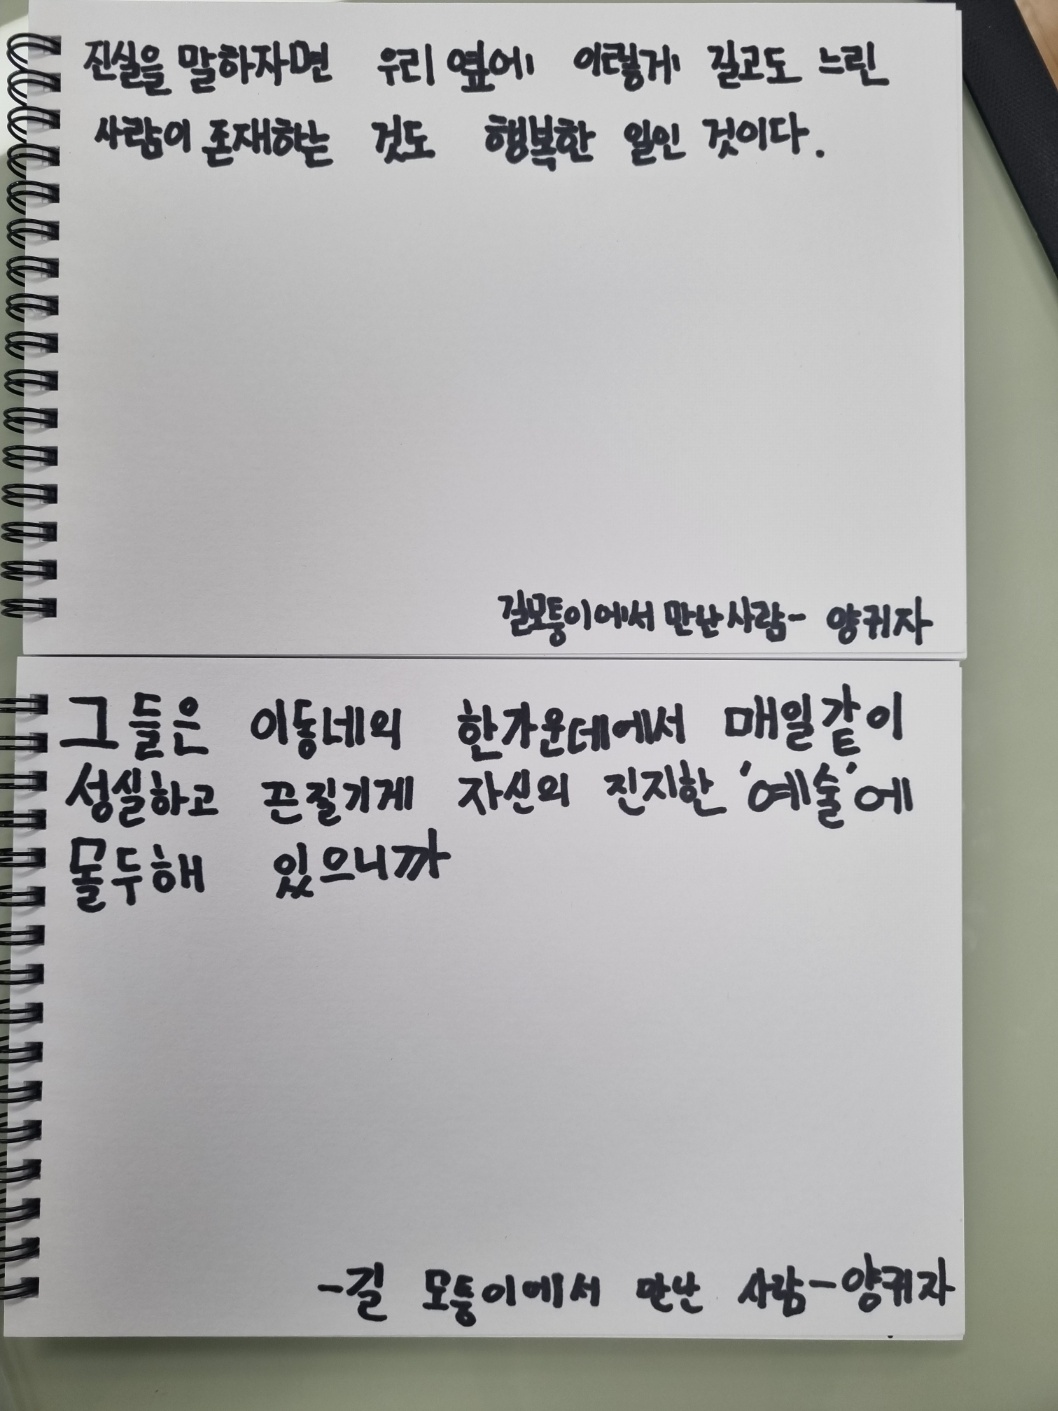 진실을 말하자면 우리 옆에 이렇게 길고도 느린
사람이 존재하는 것도 행복한 일인 것이다.
길모퉁이에서 만난사람- 양귀자
그들은 이동네의 한가운데에서 매일같이
성실하고 끈질기게 자신의 진지한 '예술'에
몰두해 있으니까
-길 모퉁이에서 만난 사람-양귀자